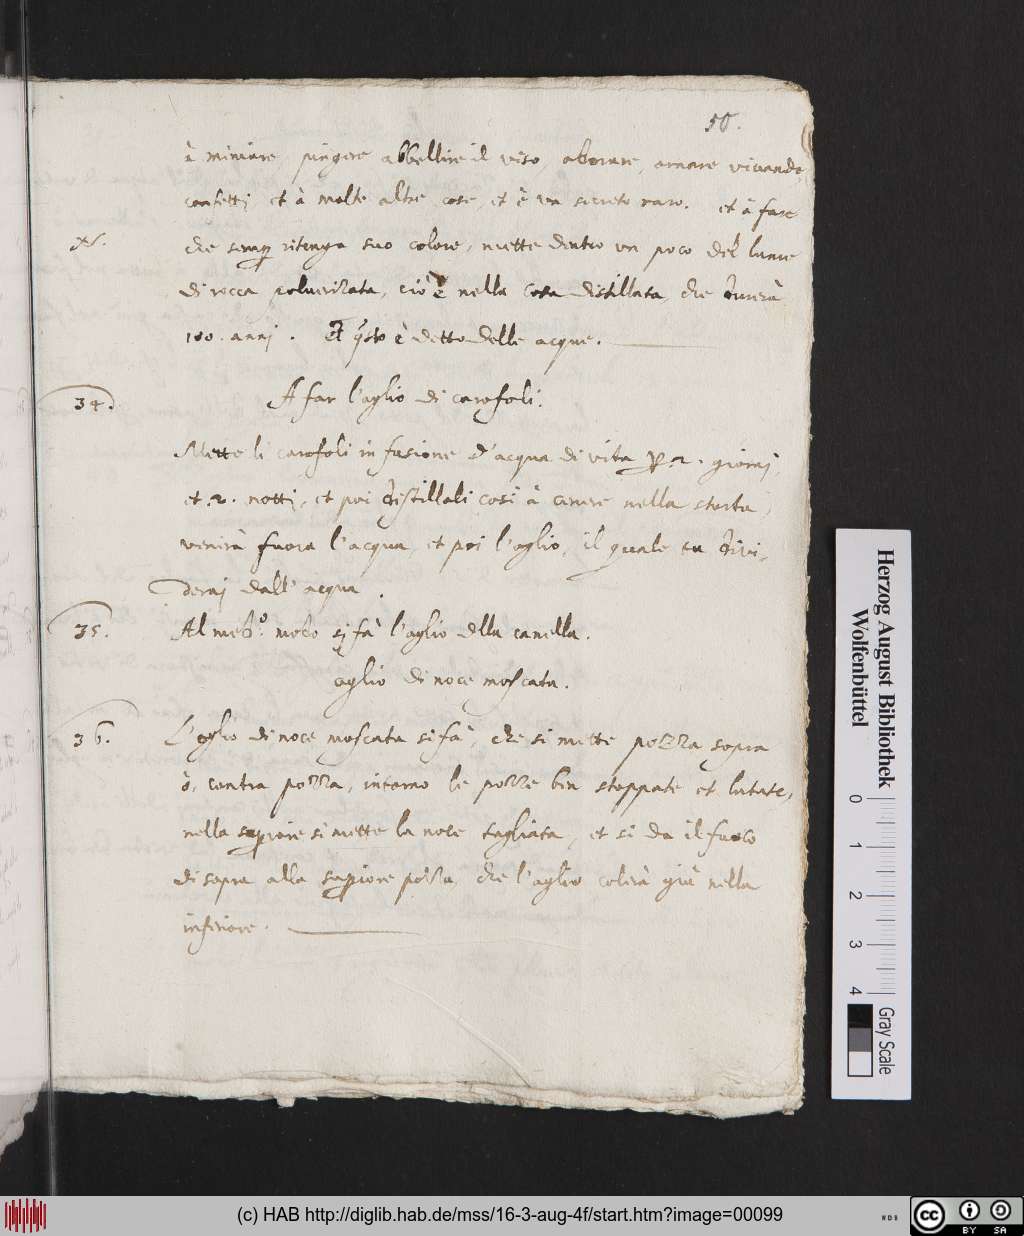 50.
à miniare, pingere abbellire il viso, odorare, ornare vivande,
confetti et à molte altre cose, et è un secreto raro. et à fare
N.
che semp ritenga suo colore, mette dentro un poco del lume
di rocca polverizata, ciò è nella cosa distillata che durerà
100. anni. Et qsto è detto delle acque.
34.
A far l'oglio di carofoli.
Mette li carofoli in fusione d'acqua di vita p 2. giorni,
et 2. notti, et poi distillali cosi à cenere nella storta,
venirà fuora l'acqua, et poi l'oglio, il quale tu divi-
derai dall'acqua.
35.
Al medo. modo si fà l'oglio della canella.
oglio di noce moscata.
36.
L'oglio di noce moscata si fà, che si mette pozza sopra
ò, contra pozza, intorno le pozze ben stoppate et lutate,
nella supiore si mette la noce tagliata, et si da il fuoco
di sopra alla supiore pozza, che l'oglio colerà giù nella
inferiore.
Herzog August Bibliothek
Wolfenbüttel
0 1 2 3 4
Gray Scale
(c) HAB http://diglib.hab.de/mss/16-3-aug-4f/start.htm?image=00099
WDB
cc BY SA